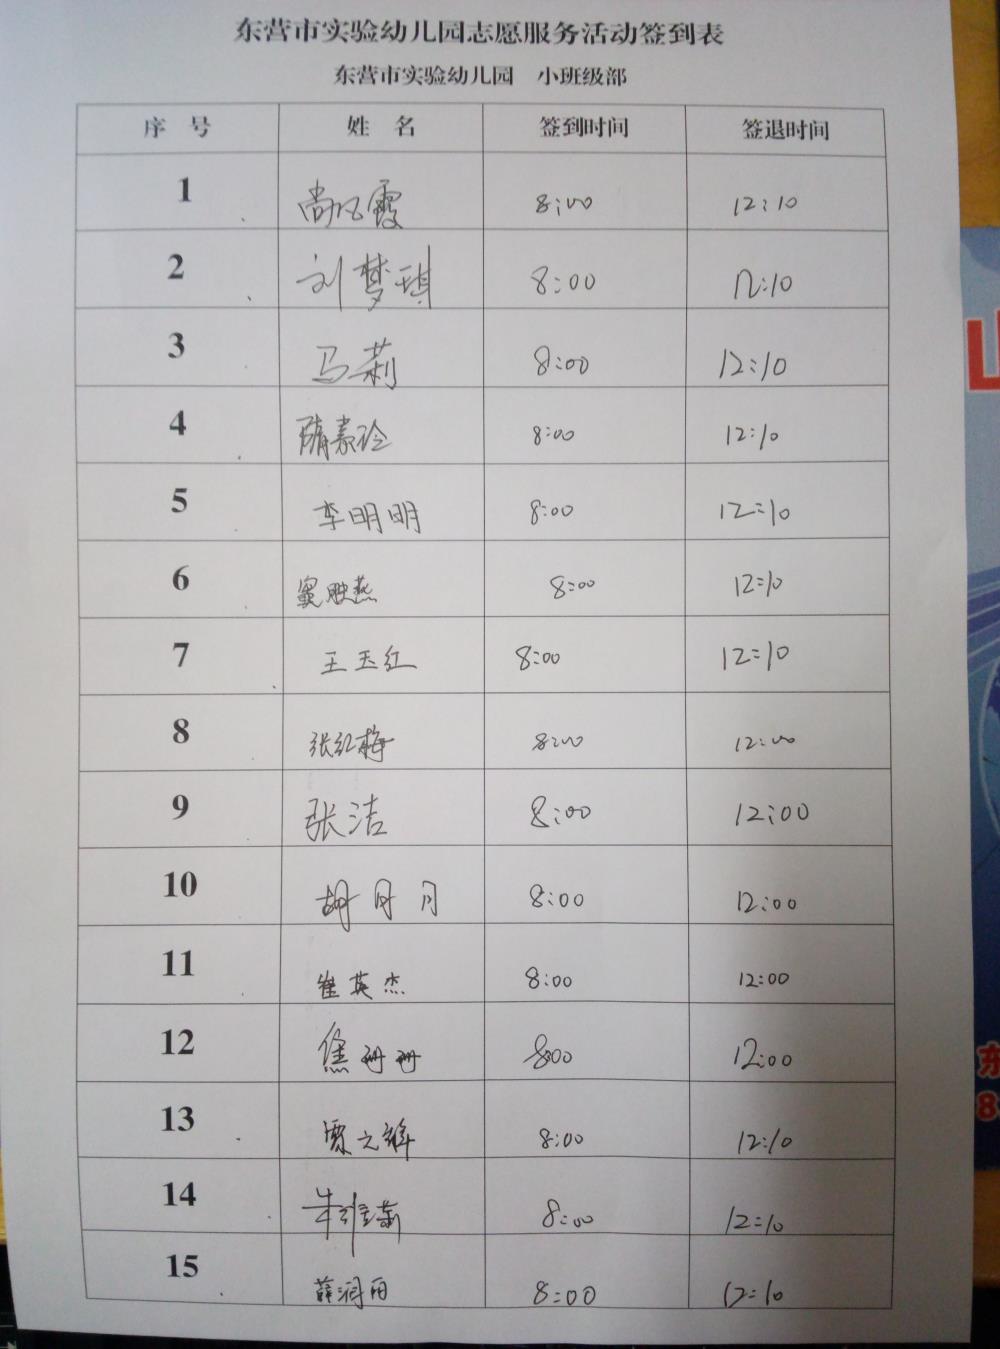 东营市实验幼儿园志愿服务活动签到表
东营市实验幼儿园 小班级部
序 号 姓 名 签到时间 签退时间
1 尚凤霞 8:00 12:10
2 刘梦琪 8:00 12:10
3 马莉 8:00 12:10
4 隋嘉玲 8:00 12:10
5 李明明 8:00 12:10
6 窦映燕 8:00 12:10
7 王玉红 8:00 12:10
8 张红梅 8:00 12:00
9 张洁 8:00 12:00
10 胡月月 8:00 12:00
11 崔英杰 8:00 12:00
12 焦珊珊 8:00 12:00
13 贾文 8:00 12:10
14 朱 8:00 12:10
15 薛润 8:00 12:10
东
8